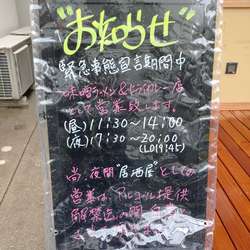 "お知らせ"
緊急事態宣言期間中
味噌ラーメン＆ビーフカレー店
として営業致します。
(昼) 11:30〜14:00
(夜) 17:30〜20:00
(LO19:45)
尚、夜間"居酒屋"としての
営業は、アルコール提供
解禁迄の間